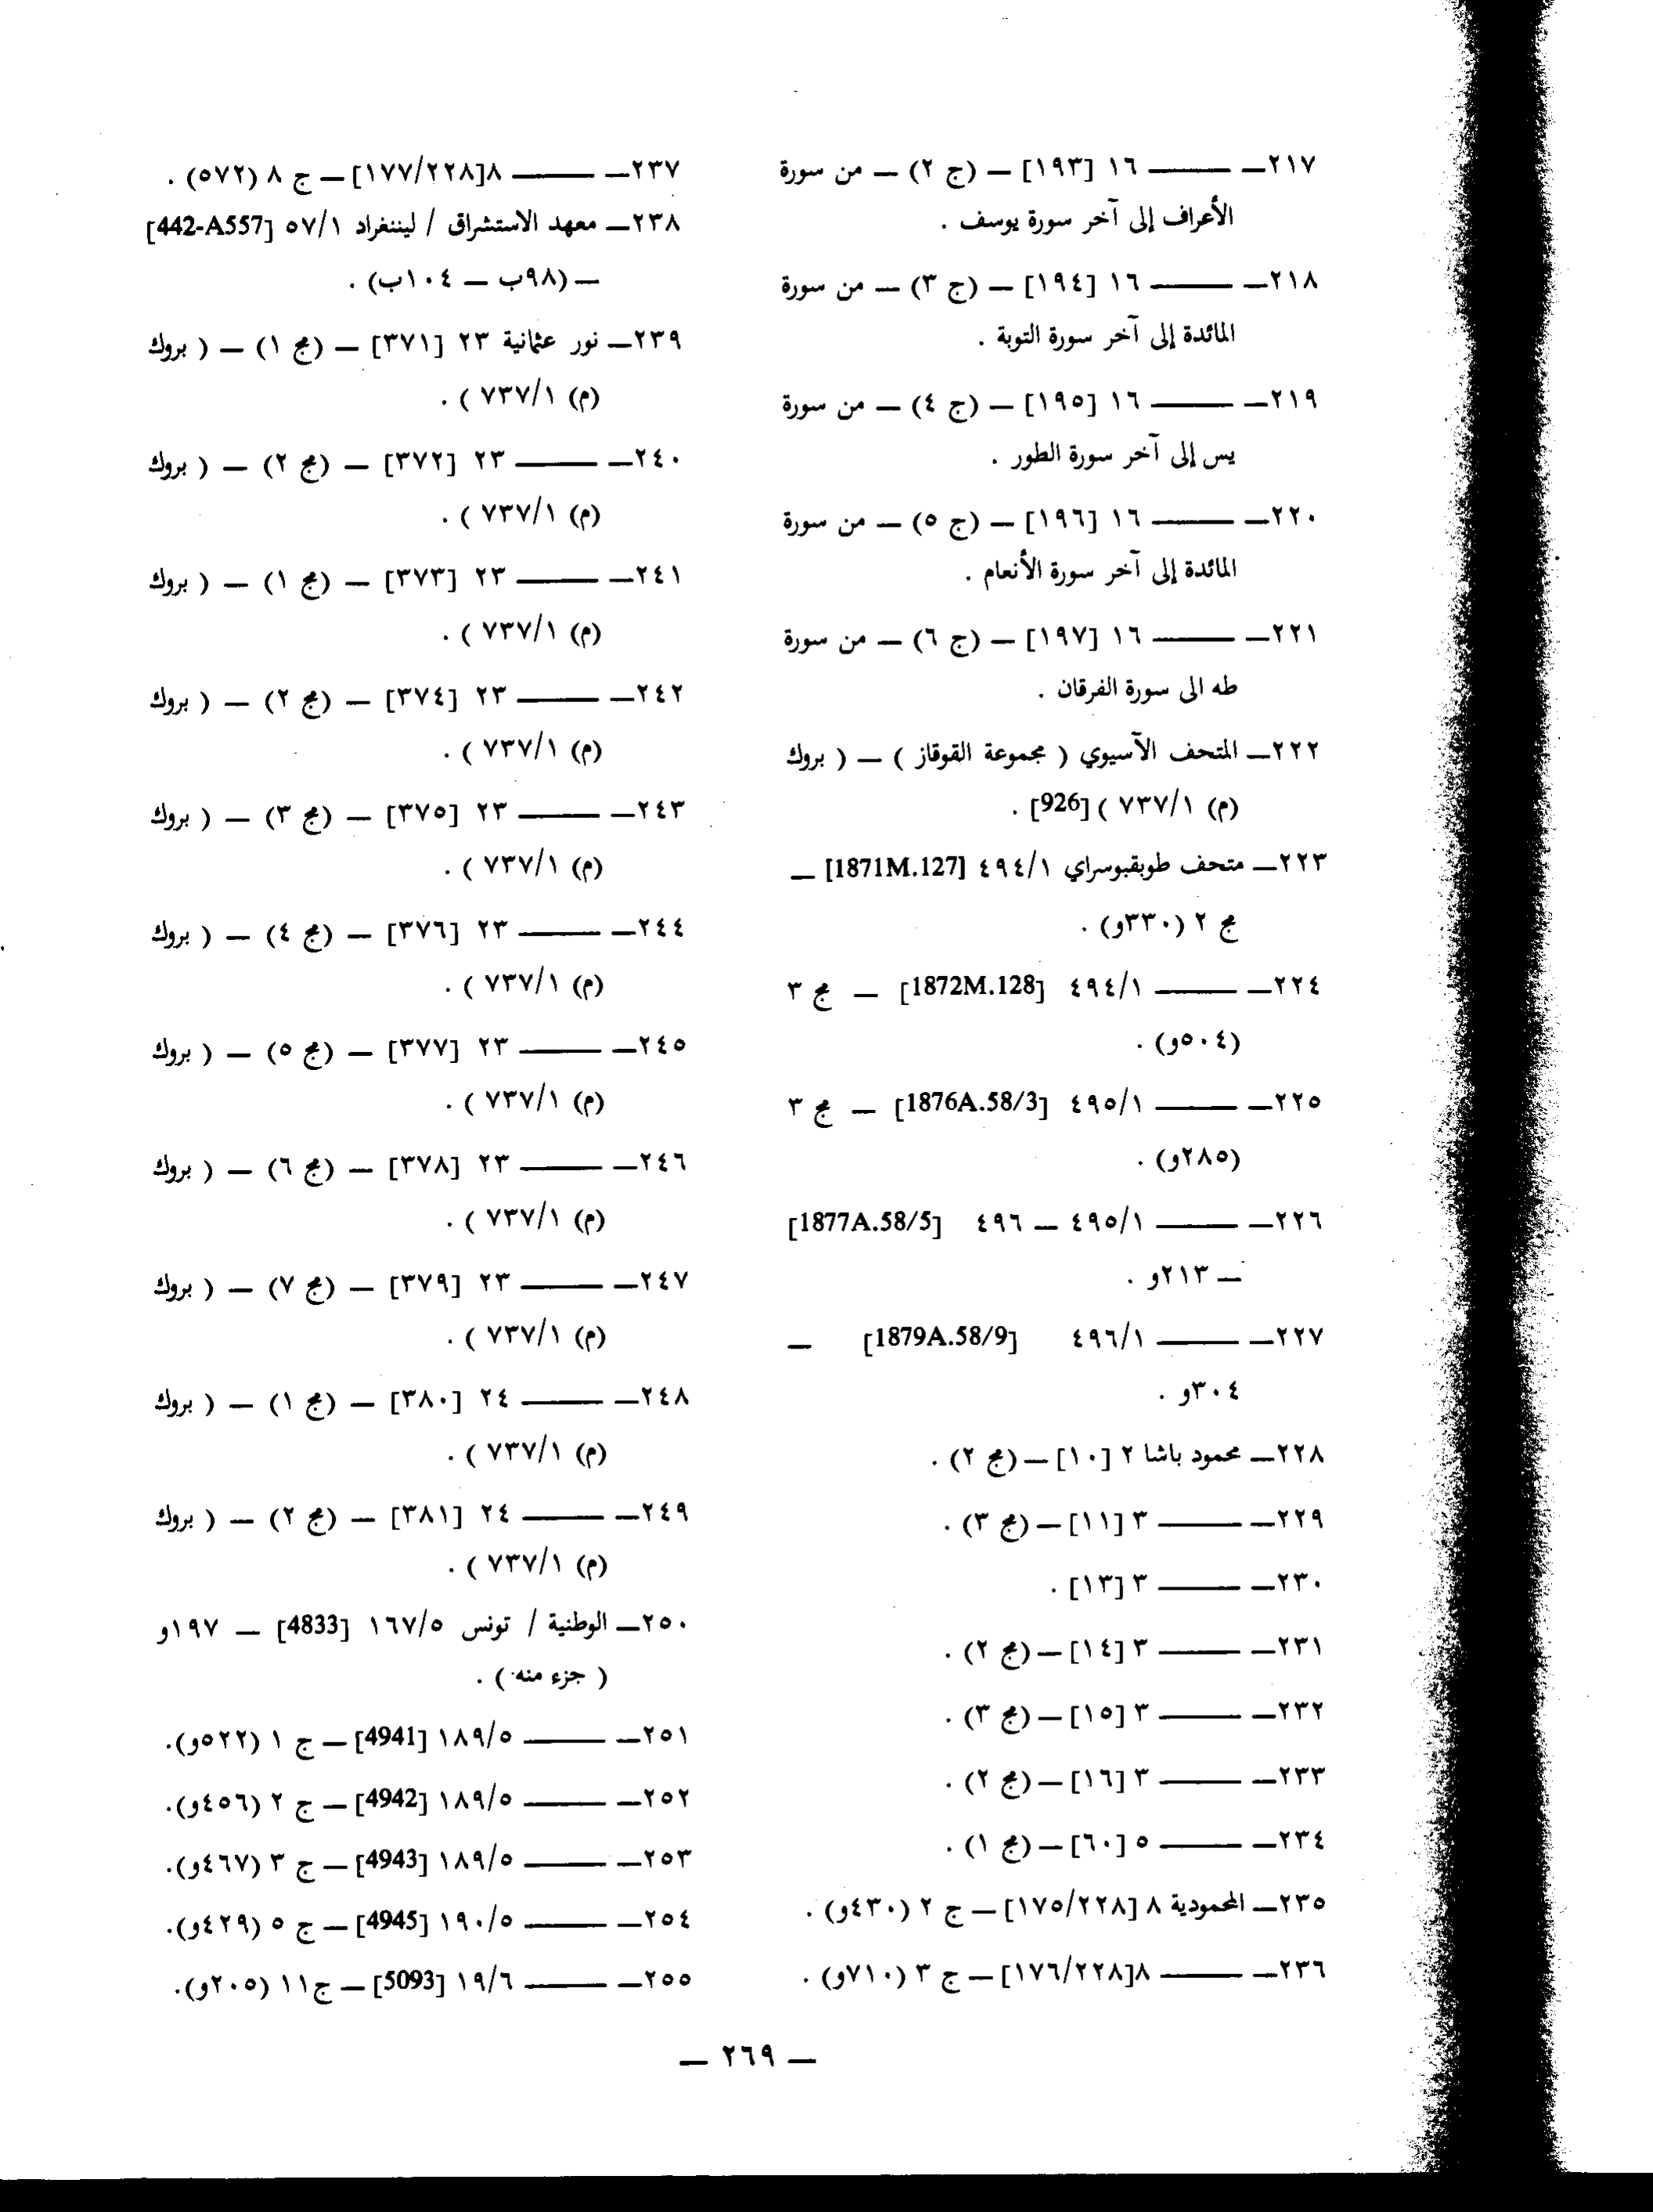 ٢١٧ـ ــــــ ١٦ [١٩٣] ـ (ج ٢) ـ من سورة
الأعراف إلى آخر سورة يوسف .
٢١٨ـ ــــــ ١٦ [١٩٤] ـ (ج ٣) ـ من سورة
المائدة إلى آخر سورة التوبة .
٢١٩ـ ــــــ ١٦ [١٩٥] ـ (ج ٤) ـ من سورة
يس إلى آخر سورة الطور .
٢٢٠ـ ــــــ ١٦ [١٩٦] ـ (ج ٥) ـ من سورة
المائدة إلى آخر سورة الأنعام .
٢٢١ـ ــــــ ١٦ [١٩٧] ـ (ج ٦) ـ من سورة
طه الى سورة الفرقان .
٢٢٢ـ المتحف الآسيوي ( مجموعة القوقاز ) ـ ( بروك
(م) ٧٣٧/١ ) [926] .
٢٢٣ـ متحف طوبقبوسراي ٤٩٤/١ [1871M.127] ـ
مج ٢ (٣٣٠و) .
٢٢٤ـ ــــــ ٤٩٤/١ [1872M.128] ـ مج ٣
(٥٠٤و) .
٢٢٥ـ ــــــ ٤٩٥/١ [1876A.58/3] ـ مج ٣
(٢٨٥و) .
٢٢٦ـ ــــــ ٤٩٥/١ ـ ٤٩٦ [1877A.58/5]
ـ ٢١٣و .
٢٢٧ـ ــــــ ٤٩٦/١ [1879A.58/9] ـ
٣٠٤و .
٢٢٨ـ محمود باشا ٢ [١٠] ـ (مج ٢) .
٢٢٩ـ ــــــ ٣ [١١] ـ (مج ٣) .
٢٣٠ـ ــــــ ٣ [١٣] .
٢٣١ـ ــــــ ٣ [١٤] ـ (مج ٢) .
٢٣٢ـ ــــــ ٣ [١٥] ـ (مج ٣) .
٢٣٣ـ ــــــ ٣ [١٦] ـ (مج ٢) .
٢٣٤ـ ــــــ ٥ [٦٠] ـ (مج ١) .
٢٣٥ـ المحمودية ٨ [١٧٥/٢٢٨] ـ ج ٢ (٤٣٠و) .
٢٣٦ـ ــــــ ٨[١٧٦/٢٢٨] ـ ج ٣ (٧١٠و) .
٢٣٧ـ ــــــ ٨[١٧٧/٢٢٨] ـ ج ٨ (٥٧٢) .
٢٣٨ـ معهد الاستشراق / ليننغراد ٥٧/١ [442-A557]
ـ (٩٨ب ـ ١٠٤ب) .
٢٣٩ـ نور عثمانية ٢٣ [٣٧١] ـ (مج ١) ـ ( بروك
(م) ٧٣٧/١ ) .
٢٤٠ـ ــــــ ٢٣ [٣٧٢] ـ (مج ٢) ـ ( بروك
(م) ٧٣٧/١ ) .
٢٤١ـ ــــــ ٢٣ [٣٧٣] ـ (مج ١) ـ ( بروك
(م) ٧٣٧/١ ) .
٢٤٢ـ ــــــ ٢٣ [٣٧٤] ـ (مج ٢) ـ ( بروك
(م) ٧٣٧/١ ) .
٢٤٣ـ ــــــ ٢٣ [٣٧٥] ـ (مج ٣) ـ ( بروك
(م) ٧٣٧/١ ) .
٢٤٤ـ ــــــ ٢٣ [٣٧٦] ـ (مج ٤) ـ ( بروك
(م) ٧٣٧/١ ) .
٢٤٥ـ ــــــ ٢٣ [٣٧٧] ـ (مج ٥) ـ ( بروك
(م) ٧٣٧/١ ) .
٢٤٦ـ ــــــ ٢٣ [٣٧٨] ـ (مج ٦) ـ ( بروك
(م) ٧٣٧/١ ) .
٢٤٧ـ ــــــ ٢٣ [٣٧٩] ـ (مج ٧) ـ ( بروك
(م) ٧٣٧/١ ) .
٢٤٨ـ ــــــ ٢٤ [٣٨٠] ـ (مج ١) ـ ( بروك
(م) ٧٣٧/١ ) .
٢٤٩ـ ــــــ ٢٤ [٣٨١] ـ (مج ٢) ـ ( بروك
(م) ٧٣٧/١ ) .
٢٥٠ـ الوطنية / تونس ١٦٧/٥ [4833] ـ ١٩٧و
( جزء منه ) .
٢٥١ـ ــــــ ١٨٩/٥ [4941] ـ ج ١ (٥٢٢و).
٢٥٢ـ ــــــ ١٨٩/٥ [4942] ـ ج ٢ (٤٥٦و).
٢٥٣ـ ــــــ ١٨٩/٥ [4943] ـ ج ٣ (٤٦٧و).
٢٥٤ـ ــــــ ١٩٠/٥ [4945] ـ ج ٥ (٤٢٩و).
٢٥٥ـ ــــــ ١٩/٦ [5093] ـ ج١١ (٢٠٥و).
ـ ٢٦٩ ـ